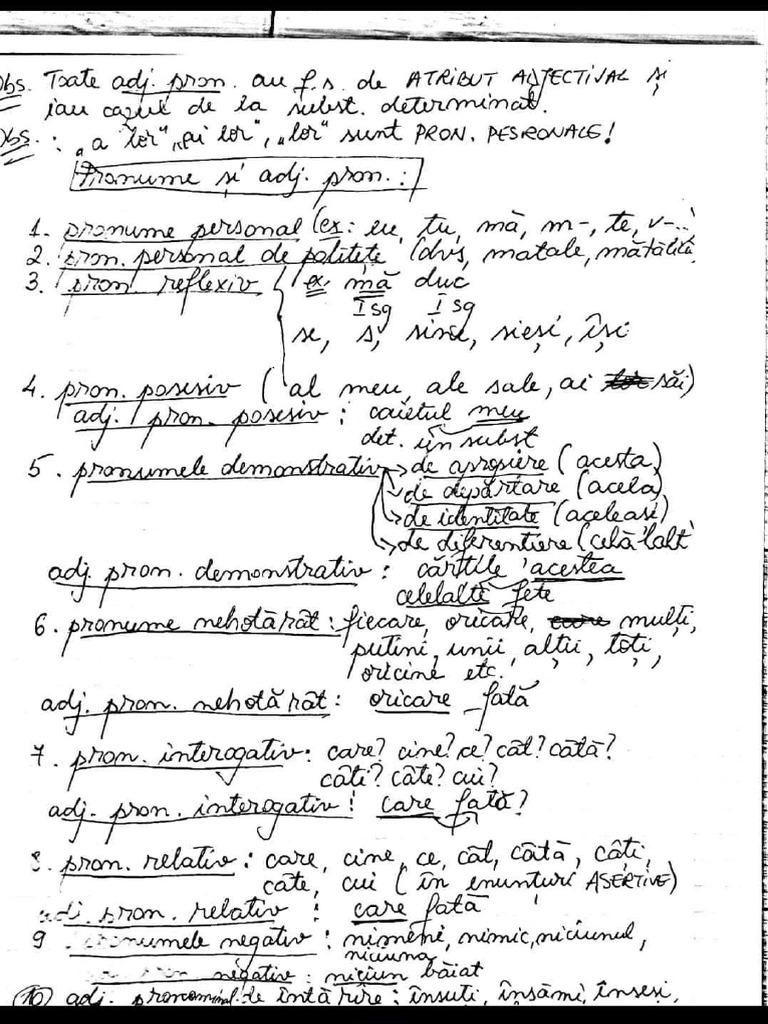 Obs. Toate adj. pron. au f.s. de ATRIBUT ADJECTIVAL și
iau cazul de la subst. determinat.
Obs. : „a lor", „ai lor", „lor" sunt PRON. PESRONALE!
Pronume și adj. pron. :
1. pronume personal (ex: eu, tu, mă, m-, te, v-...
2. pron. personal de politețe (dvs, matale, mătăliță
3. pron. reflexiv ex. mă duc
I sg I sg
se, și, sine, sieși, își
4. pron. posesiv ( al meu, ale sale, ai săi)
adj. pron. posesiv : caietul meu
det. un subst
5. pronumele demonstrativ → de apropiere ( acesta)
→ de depărtare ( acela)
→ de identitate ( același)
→ de diferențiere (celălalt
adj. pron. demonstrativ : cărțile acestea
celelalte fete
6. pronume nehotărât : fiecare, oricare, mulți,
puțini, unii, alții, toți,
oricine etc.
adj. pron. nehotărât : oricare fată
7. pron. interogativ : care? cine? ce? cât? câtă?
câți? câte? cui?
adj. pron. interogativ : care fată?
8. pron. relativ : care, cine, ce, cât, câtă, câți,
câte, cui ( în enunțuri ASERTIVE)
adj. pron. relativ : care fată
9 pronumele negativ : nimeni, nimic, niciunul,
niciuna
negativ : niciun băiat
10 adj. pronominal de întărire : însuți, însămi, înseși,